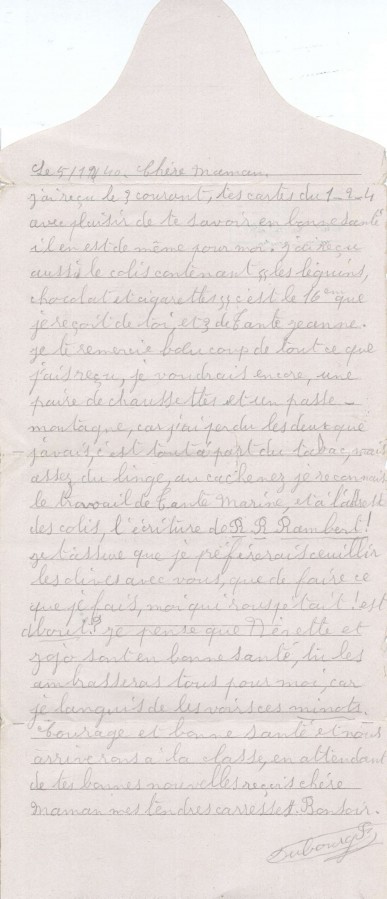 Le 5/12/40. Chère Maman.
j'ai reçu le 3 courant, tes cartes du 1-2-4
avec plaisir de te savoir en bonne santé
il en est de même pour moi. j'ai reçu
aussi le colis contenant les léguins,
chocolat et cigarettes c'est le 16ème que
je reçoit de toi, et 3 de Tante Jeanne.
je te remercie beaucoup de tout ce que
j'ais reçu, je voudrais encore, une
paire de chaussettes et un passe-
montagne, car j'ai perdu les deux que
j'avais, c'est tout à part du tabac,
assez du linge, au cachenez je reconnais
le travail de Tante Marine, et à l'adresse
des colis, l'écriture de R. R. Rambert!
je t'assure que je préférerais ceuillir
les olives avec vous, que de faire ce
que je fais, moi qui rouspetait! est
about!! je pense que Nénette et
jojo sont en bonne santé, tu les
ambrasseras tous pour moi, car
je languis de les voirs ces minots.
Courage et bonne santé et nous
arriverons à la classe, en attendant
de tes bonnes nouvelles reçois chère
Maman mes tendres carresses. Bonsoir.
Dubourg